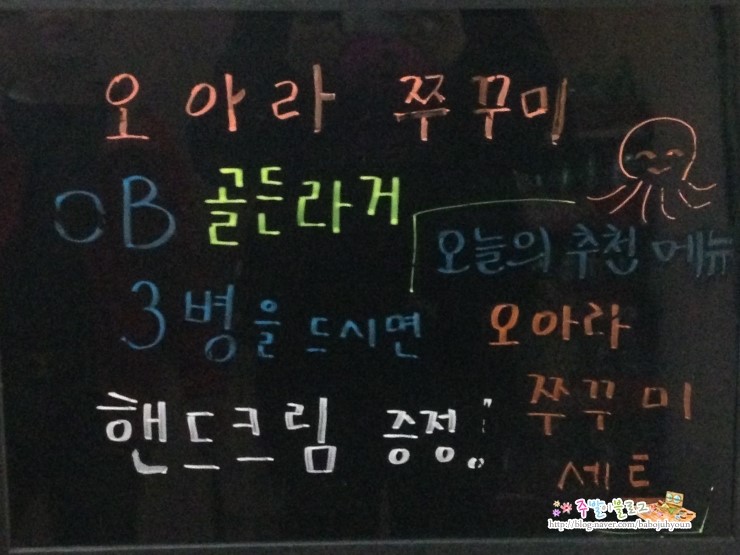 오아라 쭈꾸미
OB 골든라거
3병을 드시면
핸드크림 증정!!
오늘의 추천 메뉴
오아라
쭈꾸미
세트
주발이블로그
http://blog.naver.com/babojuhyoun